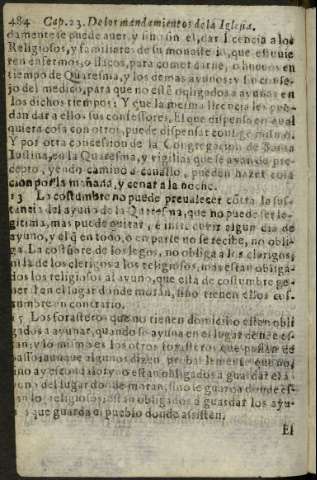 484 Cap. 23. De los mandamientos de la Iglesia.
damente se puede auer, y ningun el, dar licencia a los
Religiosos, y familiares de su monasterio, que estuuie
ren enfermos, o flacos, para comer carne, o hueuos en
tiempo de Quaresma, y los demas ayunos: y su conse-
jo del medico, para que no esté obligados a ayunar en
los dichos tiempos: Y que la mesma licencia les pue-
dan dar a ellos sus confessores. El que dispensa en qual
quiera cosa con otros, puede dispensar consigo mismo.
Y por otra concession de la Congregacion de Santa
Iustina, en la Quaresma, y vigilias que se ayunan de pre
cepto, yendo camino a cauallo, pueden hazer cola
cion por la mañana, y cenar a la noche.
13 La costumbre no puede preualecer cōtra la sus-
tancia del ayuno de la Quaresma, que no puede ser le-
gitima, mas puede quitar, è introduzir algun dia de
ayuno, y el q̄ en todo, o en parte no se recibe, no obli-
ga. La costūbre de los legos, no obliga a los clerigos,
ni la de los clerigos a los religiosos, mas estan obliga-
dos los religiosos al ayuno, que està de costumbre ge-
neral en el lugar donde moran, sino tienen ellos cos-
tumbre en contrario.
Los forasteros que no tienen domicilio estan obli
gados a ayunar, quando se ayuna en el lugar donde es-
tan, y lo mismo es los otros forasteros que passan de
passo: aunque algunos dizen probablemente que no,
sino ay escandalo: y no estan obligados a guardar el a-
yuno del lugar donde moran, sino le guardā donde es-
tan. Los religiosos, estan obligados a guardar los ayu-
nos que guarda el pueblo donde assisten.
El